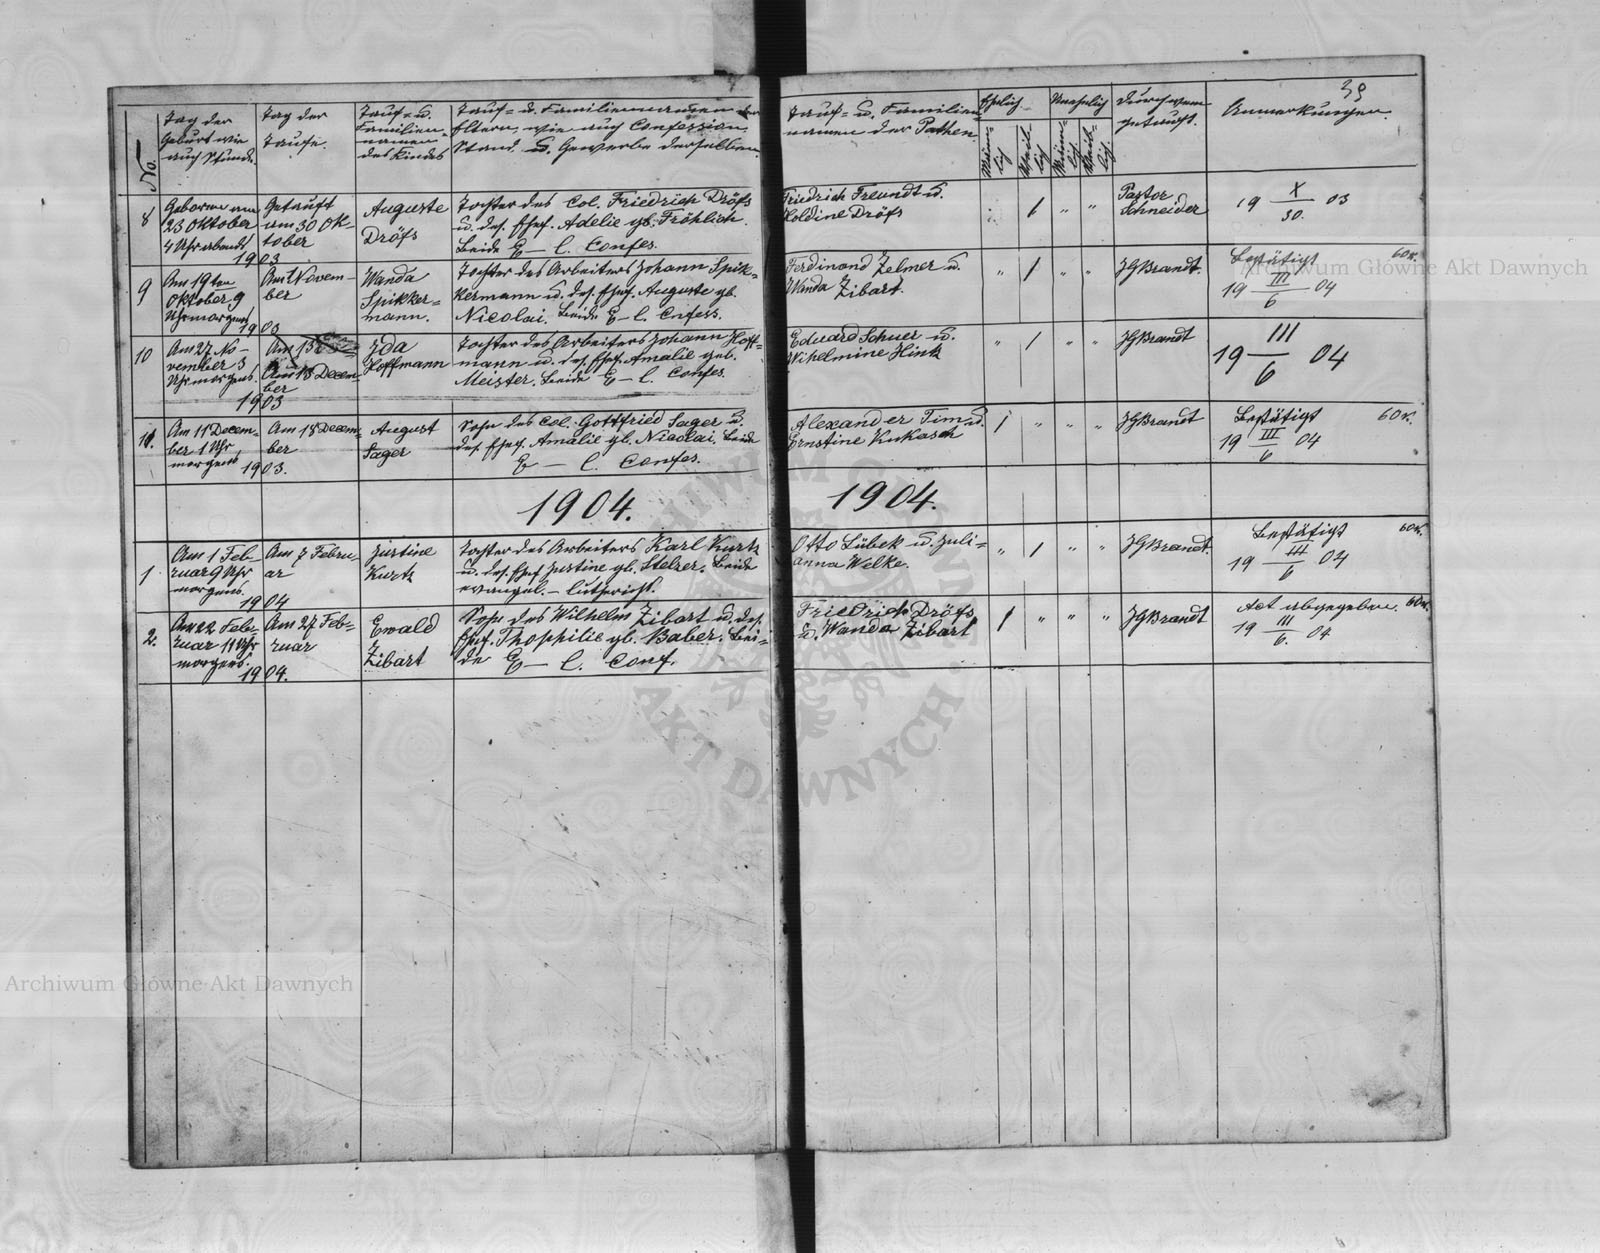 39
No.
Tag der
Geburt wie
auch Stunde.
Tag der
Taufe.
Tauf- u.
Familien-
namen
des Kindes
Tauf- u. Familiennamen der
Eltern, wie auch Confession,
Stand u. Gewerbe derselben.
Tauf- u. Familien-
namen der Pathen
Ehelich
Unehelich
Männ-
lich
Weib-
lich
Männ-
lich
Weib-
lich
Durch wem
getauft.
Anmerkungen.
8
Geboren am
23 Oktober
4 Uhr abends
1903
Getauft
am 30 Ok-
tober
Auguste
Dröfs
Tochter des Col. Friedrich Dröfs
u. des. Ehef. Adelie gb. Fröhlich.
Beide E – l. Confes.
Friedrich Freundt u.
Holdine Dröfs
1
Pastor
Schneider
19 X/30. 03
9
Am 19ten
Oktober 9
Uhr morgens
1903
Am 1 Novem-
ber
Wanda
Spikker-
mann.
Tochter des Arbeiters Johann Spik-
kermann u. des. Ehef. Auguste gb.
Nicolai. Beide E – l. Cnfess.
Ferdinand Zelmer u.
Wanda Zibart.
" 1 " "
JGBrandt.
Bestätigt 60k.
19 III/6 04
10
Am 27 No-
vember 3
Uhr morgens.
1903
Am 13
Am 13 Decem-
ber
Ida
Hoffmann
Tochter des Arbeiters Johann Hoff-
mann u. des. Ehef. Amalie geb.
Meister. Beide E – l. Confes.
Eduard Schuer u.
Wihelmine Hink
" 1 " "
JGBrandt
19 III/6 04
11.
Am 11 Decem-
ber 1 Uhr
morgens
1903.
Am 18 Decem-
ber
August
Sager
Sohn des Col. Gottfried Sager u.
des. Ehef. Amalie gb. Nicolai. Beide
E – l. Confes.
Alexander Timm u.
Ernstine Kukasch
1 " " "
JGBrandt
Bestätigt 60k.
19 III/6 04
1904. 1904.
1
Am 1 Feb-
ruar 9 Uhr
morgens.
1904
Am 7 Febru-
ar
Justine
Kurtz
Tochter des Arbeiters Karl Kurtz
u. des. Ehef. Justine gb. Stelzer. Beide
evangel. – lutherisch.
Otto Lübek u. Juli-
anna Welke.
" 1 " "
JGBrandt.
Bestätigt 60k.
19 III/6 04
2.
Am 22 Feb-
ruar 11 Uhr
morgens.
1904.
Am 27 Feb-
ruar
Ewald
Zibart
Sohn des Wilhelm Zibart u. des.
Ehef. Thophilie gb. Baber. Bei-
de E – l. Conf.
Friedrich Dröfs
u. Wanda Zibart
1 " " "
JGBrandt
Act abgegeben. 60k.
19 III/6. 04
Archiwum Główne Akt Dawnych
Archiwum Główne Akt Dawnych
AKT DAWNYCH